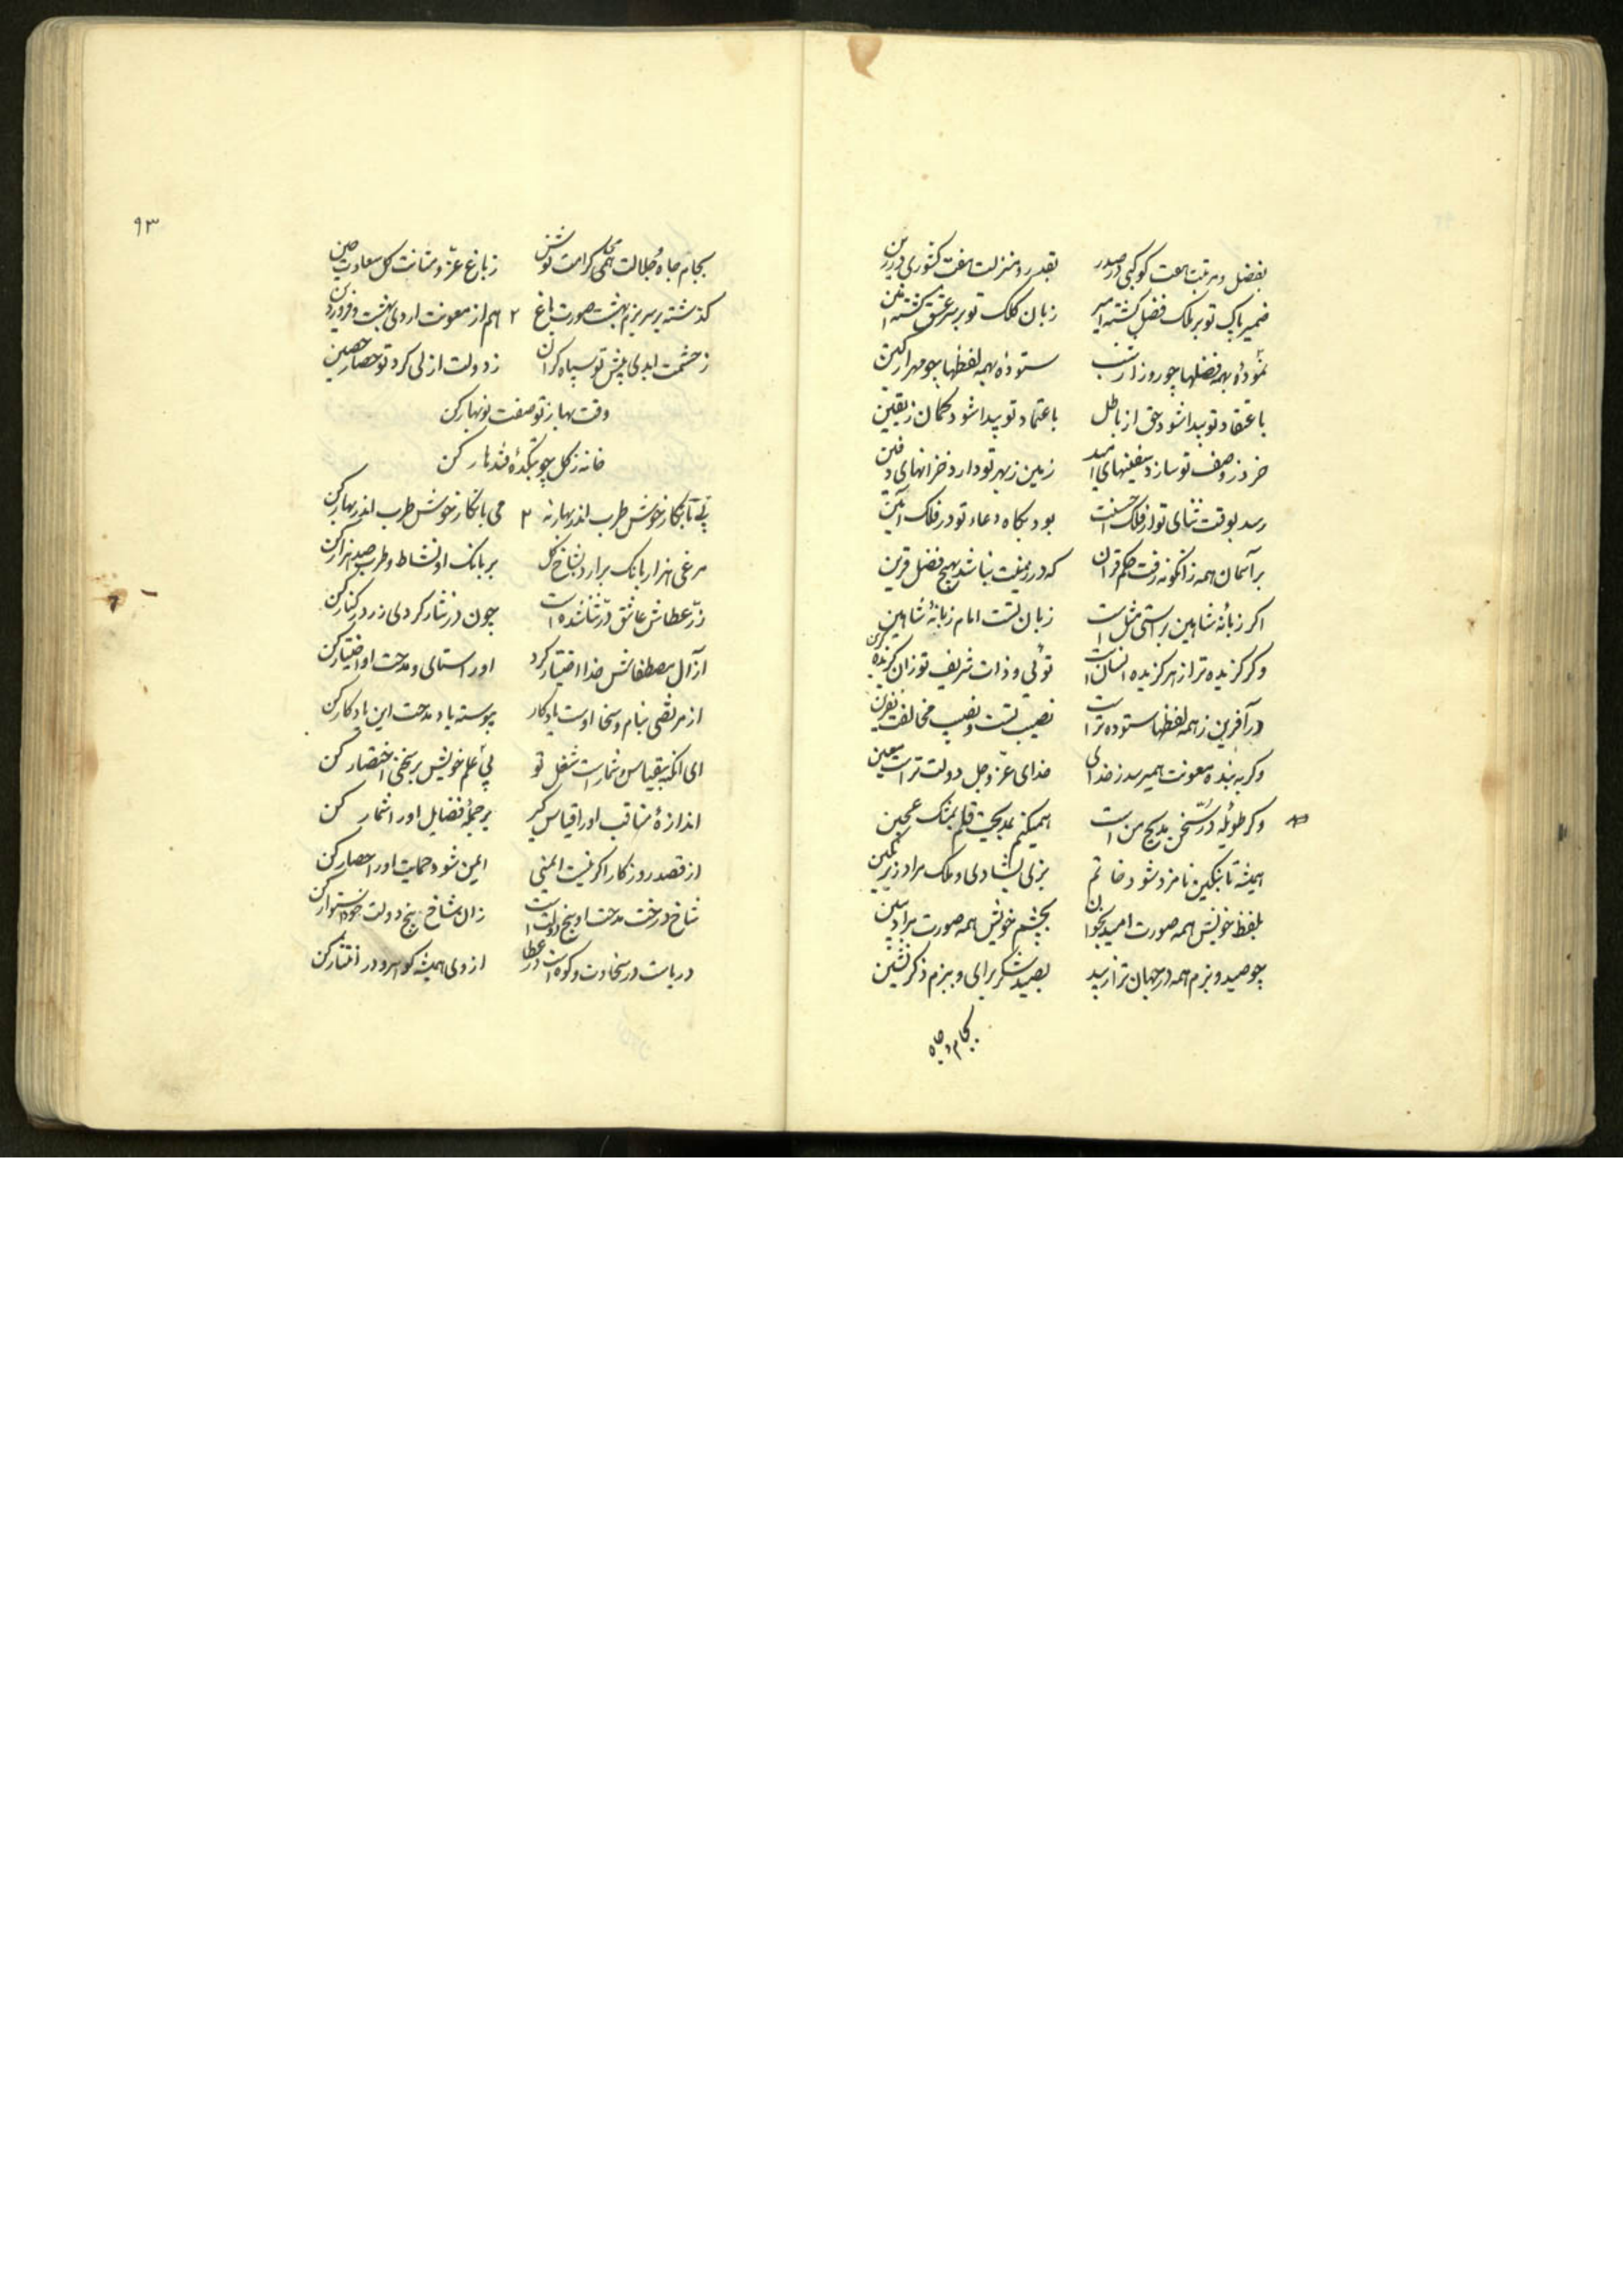 بفضل و مرتبت هفت کوکبی در صدر بقدر و منزلت هفت کشوری در زین
ضمیر پاک تو بر ملک فضل کشته امیر زبان کلک تو بر سر عشق کشته امین
نمودهٔ بهمه فضلها چو روز از شب ستودهٔ بهمه لفظها چو مهر از کین
باعتقاد تو پیدا شود حق از باطل باعتماد تو پیدا شود کمان ز یقین
خرد ز وصف تو سازد سفینهای امید زمین ز بهر تو دارد خزانهای دفین
رسد بوقت ثنای تو از فلک احسنت بود بکاه دعاء تو در فلک آمین
بر آسمان همه زانکونه رفت حکم قران که در زمینت نباشد بهیچ فضل قرین
اکر زبانهٔ شاهین براستی مثل است زبان تست امام زبانهٔ شاهین
وکر کزیده تر از هر کزیده انسان است توئی و ذات شریف تو زان کزیده کزین
ور آفرین ز همه لفظها ستوده تر است نصیب تست و نصیب مخالفت نفرین
وکر به بنده معونت همیرسد ز خدای خدای عز و جل دولت تراست معین
وکر طویلهٔ در سخن مدیح من است همیکنم بمدیحت قلم بمشک عجین
همیشه تا بنکین نامزد شود خاتم بزی بشادی و ملک مراد زیر نکین
بلفظ خویش همه صورت امید بخوان بچشم خویش همه صورت مراد ببین
چو صید و بزم همه در جهان ترا زیبد بصید شکر برای و ببزم ذکر نشین
بجام و جاه
۹۳
بجام جاه و جلالت همی کرامت نوش ز باغ عز و متانت کل سعادت چین
کذشته بر سر بزم بهشت صورت باغ ۲ هم از معونت اردی بهشت و فروردین
ز حشمت ابدی پیش تو سپاه کران ز دولت ازلی کرد تو حصار حصین
وقت بهار نو صفت نوبهار کن
خانه ز کل چو بتکدهٔ قندهار کن
بی نکار خوش طرب اندر بهار نه ۲ می با نکار نوش طرب اندر بهار کن
مرغی هزار بانک برارد بشاخ کل بر بانک او نشاط و طرب صد هزار کن
زر عطاش عاشق در شده است چون در نثار کردی زر در کنار کن
از آل مصطفاش خدا اختیار کرد او را ستای و مدحت او اختیار کن
از مرتضی بنام و سخا اوست یادکار پیوسته یاد مدحت این یادکار کن
ای انکه بیقیاس و شمار است شغل تو پی علم خویش بر سخنی اختصار کن
اندازهٔ مناقب او را قیاس کیر بر جملهٔ فضایل او را شمار کن
از قصد روزکار اکر نیست ایمنی ایمن شو و حمایت او را حصار کن
شاخ درخت مدحت او بیخ دولت است زان شاخ بیخ دولت خود استوار کن
دریاست در سخاوت و کوه است در عطا از وی همیشه کوهر و در افتخار کن